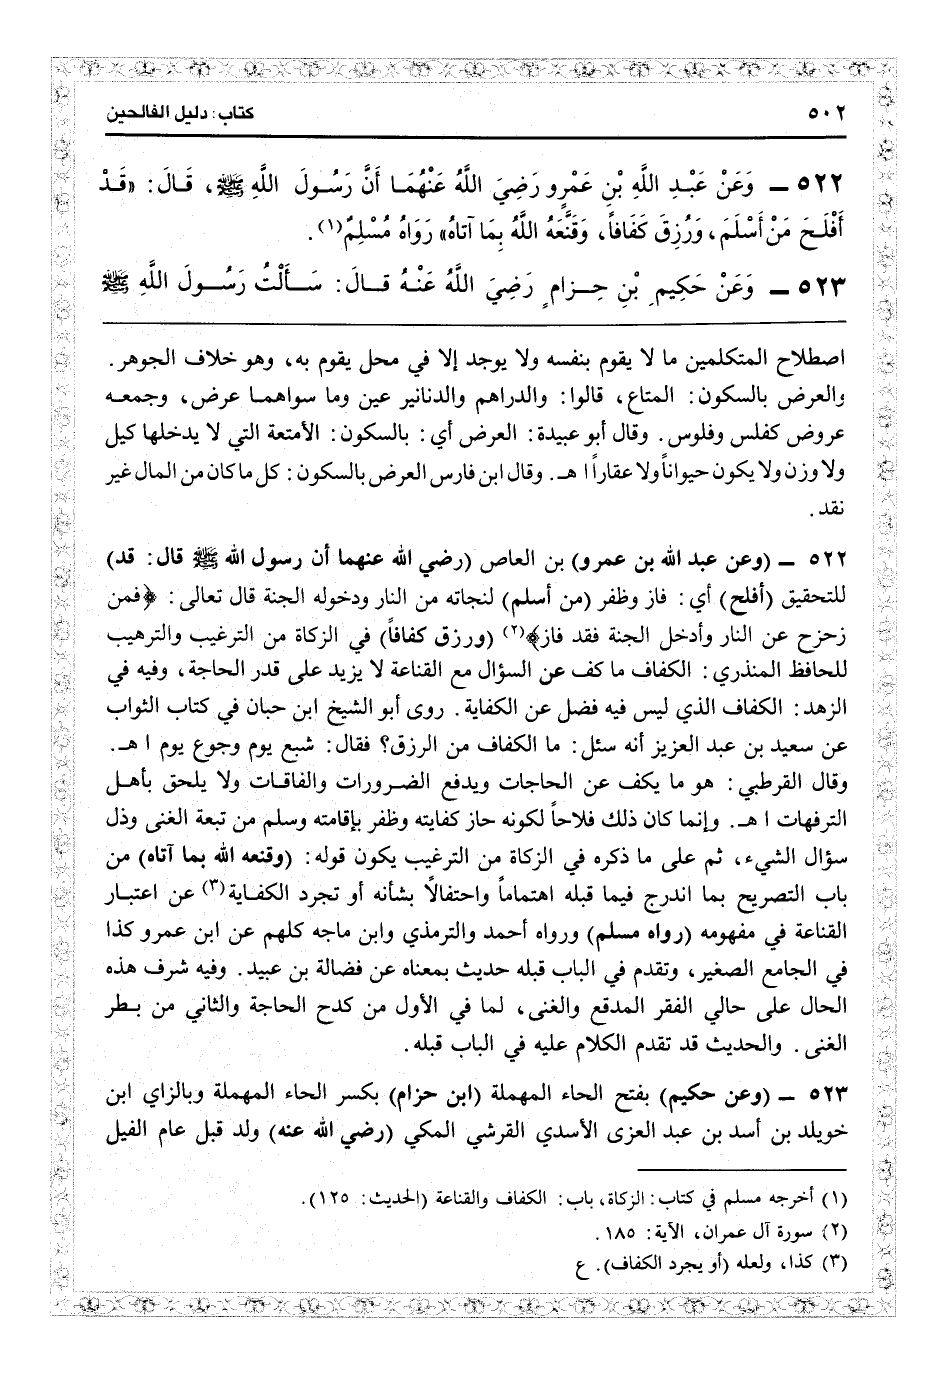 ٥٠٢
كتاب: دليل الفالحين
٥٢٢ ـ وَعَنْ عَبْدِ اللَّهِ بْنِ عَمْرٍو رَضِيَ اللَّهُ عَنْهُمَـا أَنَّ رَسُـولَ اللَّهِ ﷺ، قَـالَ: «قَـدْ
أَفْلَحَ مَنْ أَسْلَمَ، وَرُزِقَ كَفَافاً، وَقَنَّعَهُ اللَّهُ بِمَا آتاهُ» رَوَاهُ مُسْلِمٌ(١).
٥٢٣ ـ وَعَنْ حَكِيمِ بْنِ حِـزامٍ رَضِيَ اللَّهُ عَنْـهُ قـالَ: سَـأَلْتُ رَسُـولَ اللَّهِ ﷺ
اصطلاح المتكلمين ما لا يقوم بنفسه ولا يوجد إلا في محل يقوم به، وهو خلاف الجوهر.
والعرض بالسكون: المتاع، قالوا: والدراهم والدنانير عين وما سواهمـا عرض، وجمعـه
عروض كفلس وفلوس. وقال أبو عبيدة: العرض أي: بالسكون: الأمتعة التي لا يدخلها كيل
ولا وزن ولا يكون حيواناً ولا عقاراً ا هـ. وقال ابن فارس العرض بالسكون: كل ما كان من المال غير
نقد.
٥٢٢ ـ (وعن عبد الله بن عمرو) بن العاص (رضي الله عنهما أن رسول الله ﷺ قال: قد)
للتحقيق (أفلح) أي: فاز وظفر (من أسلم) لنجاته من النار ودخوله الجنة قال تعالى: ﴿فمن
زحزح عن النار وأدخل الجنة فقد فاز﴾(٢) (ورزق كفافاً) في الزكاة من الترغيب والترهيب
للحافظ المنذري: الكفاف ما كف عن السؤال مع القناعة لا يزيد على قدر الحاجة، وفيه في
الزهد: الكفاف الذي ليس فيه فضل عن الكفاية. روى أبو الشيخ ابن حبان في كتاب الثواب
عن سعيد بن عبد العزيز أنه سئل: ما الكفاف من الرزق؟ فقال: شبع يوم وجوع يوم ا هـ.
وقال القرطبي: هو ما يكف عن الحاجات ويدفع الضـرورات والفاقـات ولا يلحق بأهـل
الترفهات ا هـ. وإنما كان ذلك فلاحاً لكونه حاز كفايته وظفر بإقامته وسلم من تبعة الغنى وذل
سؤال الشيء، ثم على ما ذكره في الزكاة من الترغيب يكون قوله: (وقنعه الله بما آتاه) من
باب التصريح بما اندرج فيما قبله اهتماماً واحتفالاً بشأنه أو تجرد الكفـاية(٣) عن اعتبار
القناعة في مفهومه (رواه مسلم) ورواه أحمد والترمذي وابن ماجه كلهم عن ابن عمرو كذا
في الجامع الصغير، وتقدم في الباب قبله حديث بمعناه عن فضالة بن عبيد. وفيه شرف هذه
الحال على حالي الفقر المدقع والغنى، لما في الأول من كدح الحاجة والثاني من بـطر
الغنى. والحديث قد تقدم الكلام عليه في الباب قبله.
٥٢٣ ـ (وعن حكيم) بفتح الحاء المهملة (ابن حزام) بكسر الحاء المهملة وبالزاي ابن
خويلد بن أسد بن عبد العزى الأسدي القرشي المكي (رضي الله عنه) ولد قبل عام الفيل
(١) أخرجه مسلم في كتاب: الزكاة، باب: الكفاف والقناعة (الحديث: ١٢٥).
(٢) سورة آل عمران، الآية: ١٨٥.
(٣) كذا، ولعله (أو يجرد الكفاف). ع